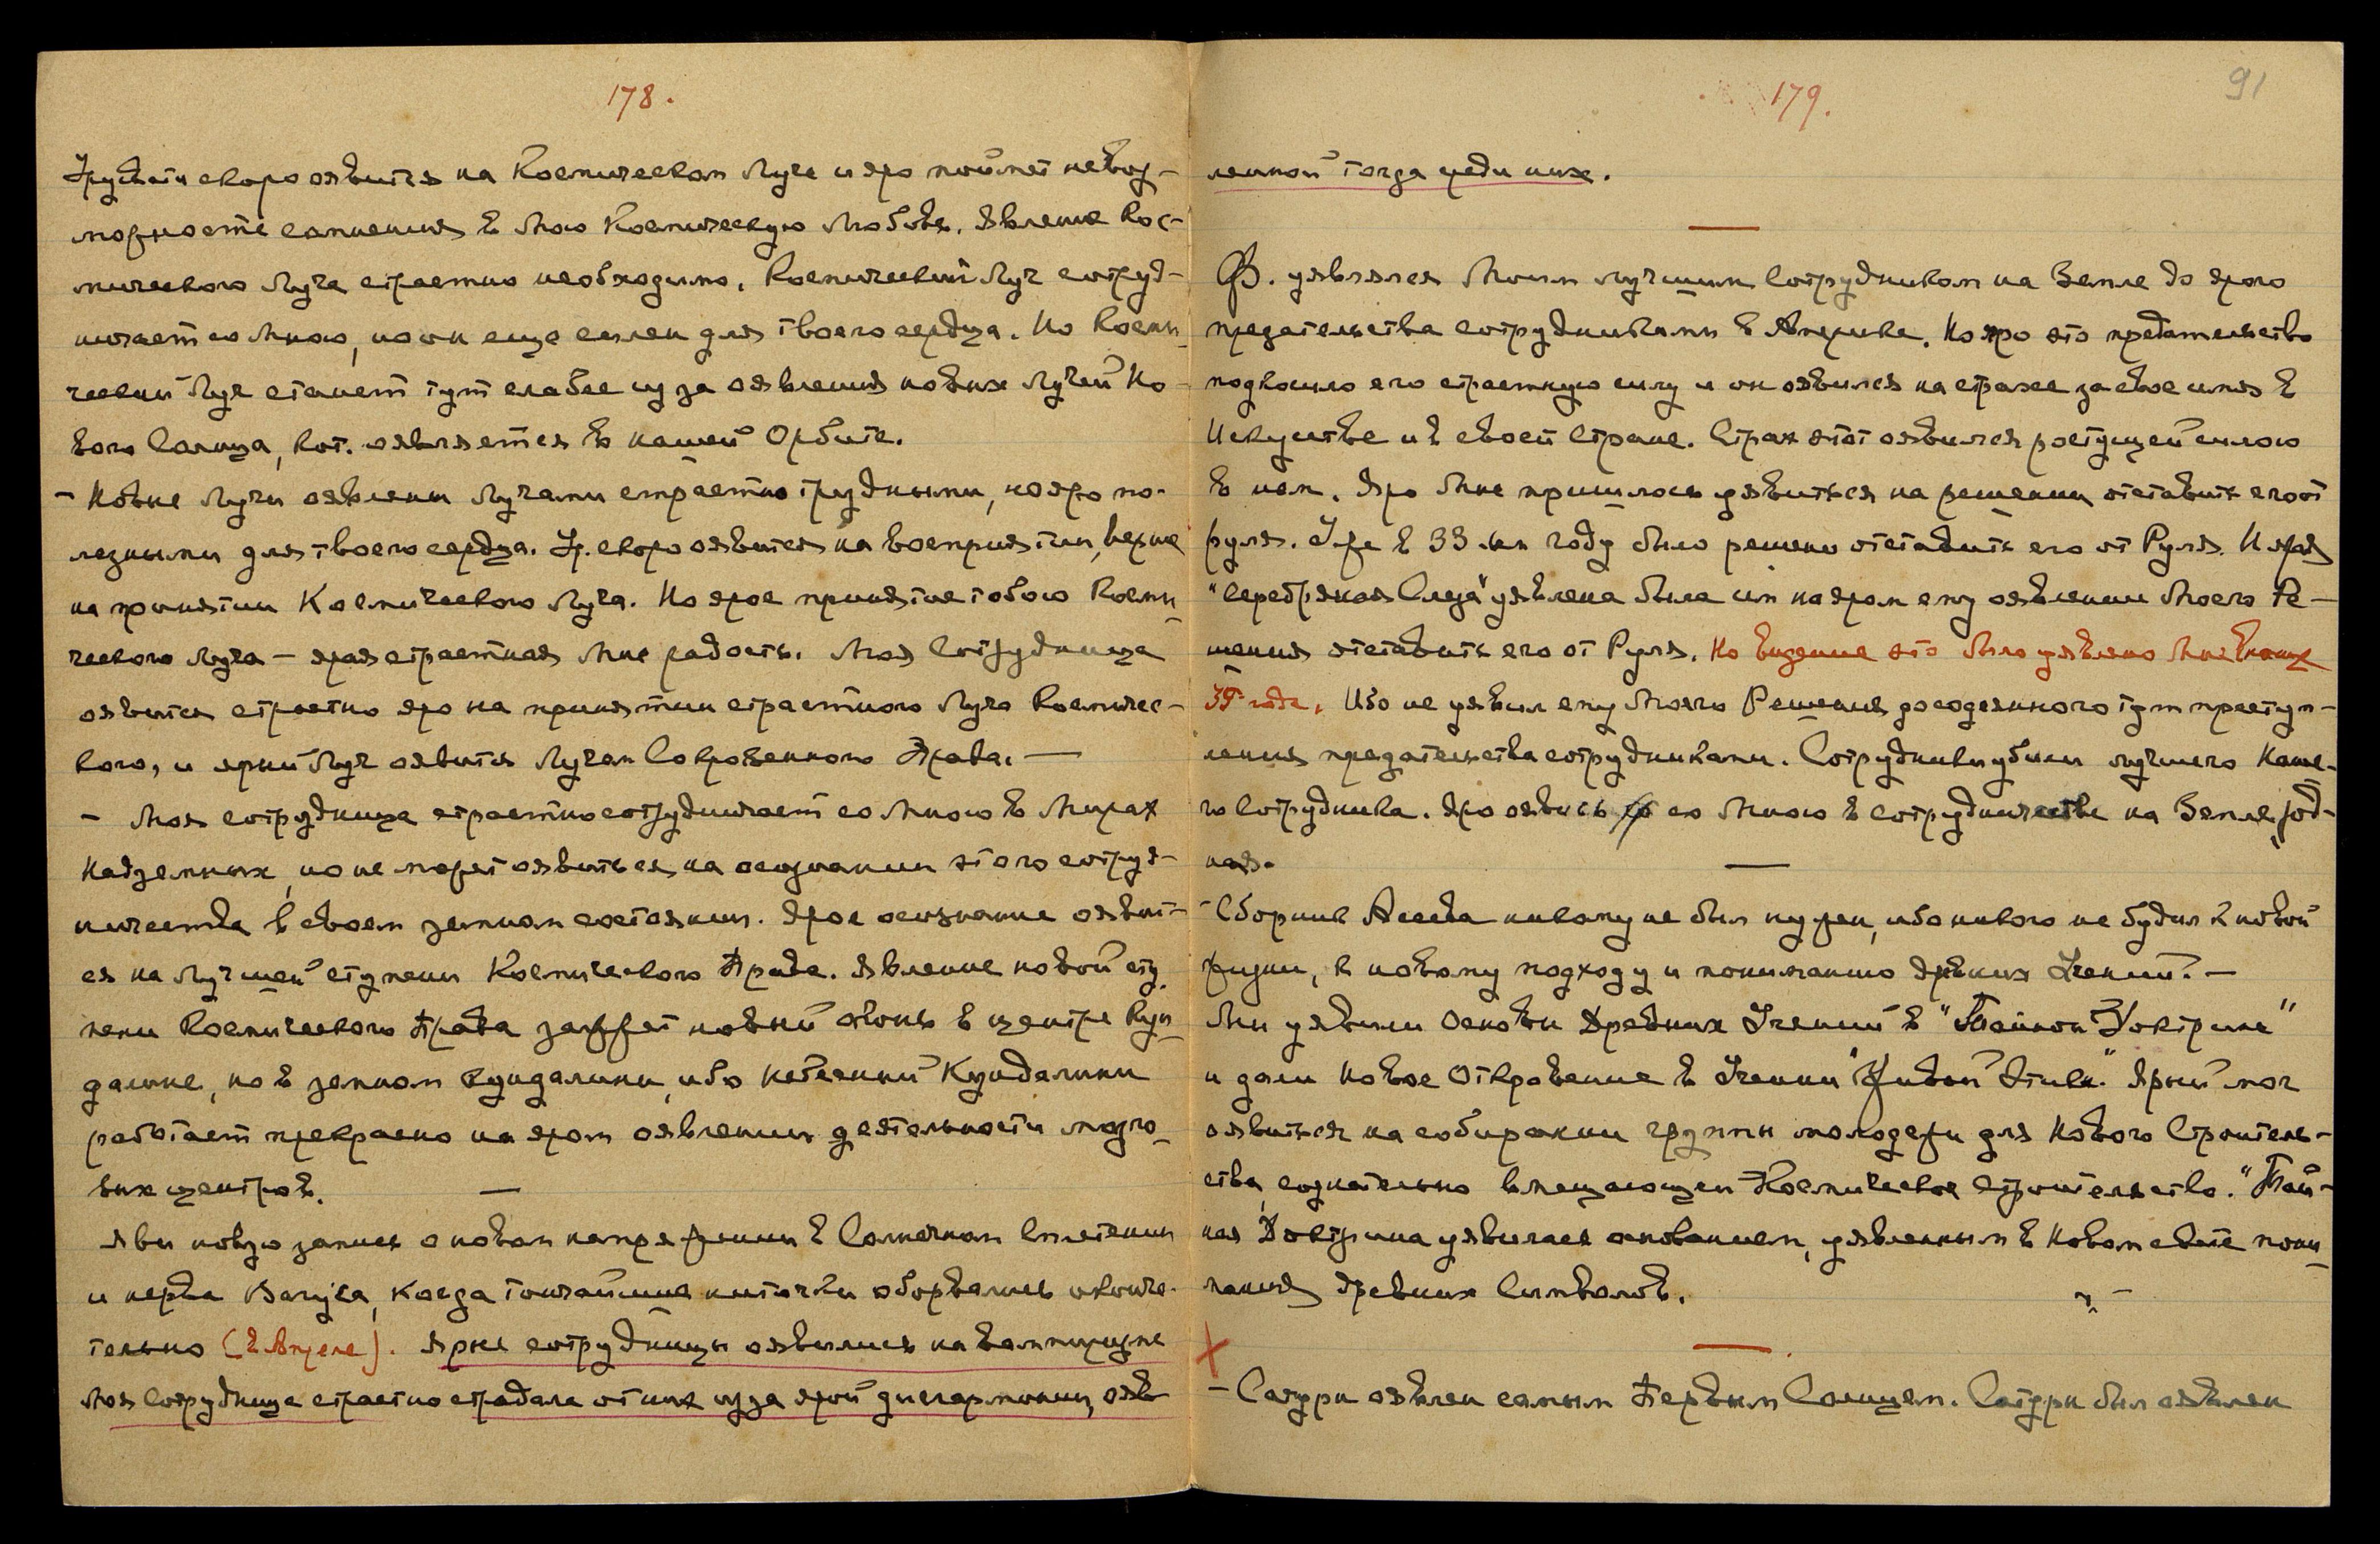 178.
Урувати скоро оявится на Космическом Луче и яро поймет невоз-
можность сомнения в Мою Космическую Любовь. Явление Кос-
мического Луча страстно необходимо. Космический Луч сотруд-
ничает со Мною, но он еще силен для твоего сердца. Но Косми
ческий Луч станет тут слабее из за оявления новых Лучей Но-
вого Солнца, кот. оявляется в нашей Орбите.
- Новые Лучи оявлены Лучами страстно трудными, но яро по-
лезными для твоего сердца. Ур. скоро оявится на восприятии, вернее
на принятии Космического Луча. Но ярое принятие тобою Косми
ческого Луча – ярая страстная Мне радость. Моя Сотрудница
оявится страстно яро на принятии страстного Луча Космичес-
кого, и ярый Луч оявится Лучом Сокровенного Права. —
- Моя сотрудница страстно сотрудничает со Мною в Мирах
Надземных, но не может оявиться на осознании этого сотруд-
ничества в своем земном состоянии. Ярое осознание оявит-
ся на Лучшей ступени Космического Права. Явление новой сту
пени Космического Права зажжет новый огонь в центре Кун
далине, но в земном Кундалини, ибо Небесный Кундалини
работает прекрасно на яром оявлении деятельности мозго
вых центров. —
Яви новую запись о новом напряжении в Солнечном Сплетении
и нерва Вагуса, когда тончайшие ниточки оборвались оконча-
тельно (в Апреле). Ярые сотрудницы оявились на вампиризме
Моя Сотрудница страстно страдала от них из за ярой дисгармонии,ояв
179.
91
ленной тогда среди них.
Ф. уявлялся Моим лучшим Сотрудником на Земле до ярого
предательства сотрудниками в Америке. Но яро это предательство
подкосило его страстную силу и он оявился на страхе за свое имя в
Искусстве и в своей Стране. Страх этот оявился растущей силою
в нем. Яро Мне пришлось уявиться на решении отставить его от
руля. Уже в 33-ем году было решено отставить его от Руля. И ярая
"Серебряная Слеза" уявлена была им на яром ему оявлении Моего Ре-
шения отставить его от Руля. Но видение это было уявлено Мне в конце
39 года. Ибо не уявил ему Моего Решения до содеянного тут преступ-
ления предательства сотрудниками. Сотрудники убили лучшего Наше-
го Сотрудника. Яро оявись со Мною в сотрудничестве на Земле, род-
ная.
- Сборник Асеева никому не был нужен, ибо никого не будил к новой
жизни, к новому подходу и пониманию древних Учений. —
Мы уявили Основы Древних Учений в "Тайной Доктрине"
и дали Новое Откровение в Учении "Живой Этики". Ярый мог
оявиться на собирании группы молодежи для Нового Строитель-
ства, сознательно вмещающей Космическое строительство. "Тай-
ная Доктрина уявилась основанием, уявленным в Новом свете пони
мания древних Символов.
- Саурри оявлен самым Первым Солнцем. Саурри был оявлен